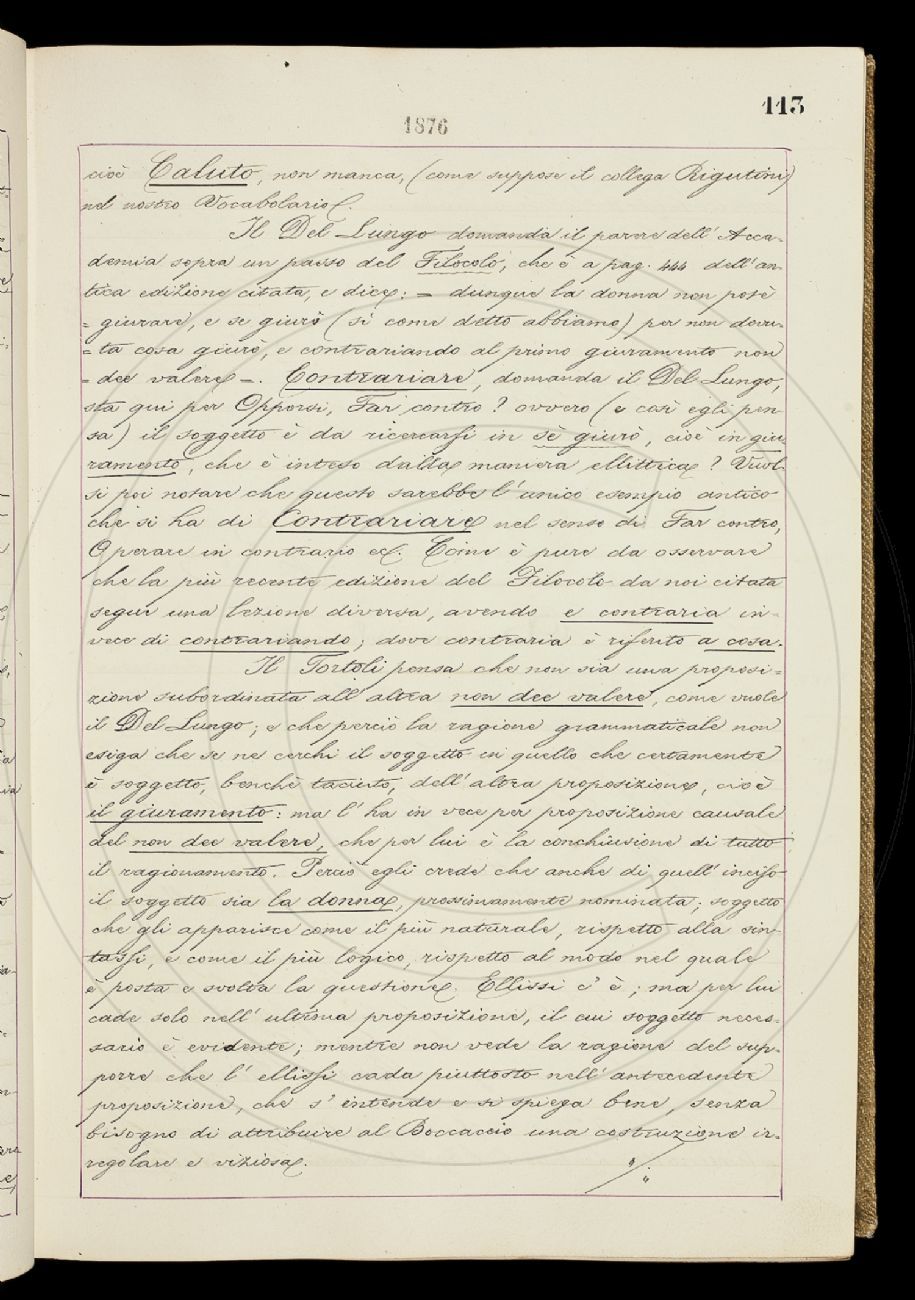 113
1876
cioè Caluto, non manca, (come suppose il collega Rigutini)
nel nostro Vocabolario.
Il Del Lungo domanda il parere dell' Acca-
demia sopra un passo del Filocolo, che è a pag. 444 dell' an-
tica edizione citata, e dice: = dunque la donna non potè
= giurare, e se giurò (sì come detto abbiamo) per non dovu-
= ta cosa giurò, e contrariando al primo giuramento non
= dee valere =. Contrariare, domanda il Del Lungo,
sta qui per Opporsi, Far contro? ovvero (e così egli pen-
sa) il soggetto è da ricercarsi in sè giurò, cioè in giu-
ramento, che è inteso dalla maniera ellittica? Vuol-
si poi notare che questo sarebbe l' unico esempio antico
che si ha di Contrariare nel senso di Far contro,
Operare in contrario ec. Come è pure da osservare
che la più recente edizione del Filocolo da noi citata
segue una lezione diversa, avendo e contraria in-
vece di contrariando; dove contraria è riferito a cosa.
Il Tortoli pensa che non sia una proposi-
zione subordinata all' altra non dee valere, come vuole
il Del Lungo; e che perciò la ragione grammaticale non
esiga che se ne cerchi il soggetto in quello che certamente
è soggetto, benchè taciuto, dell' altra proposizione, cioè
il giuramento: ma l' ha in vece per proposizione causale
del non dee valere, che per lui è la conchiusione di tutto
il ragionamento. Perciò egli crede che anche di quell' inciso
il soggetto sia la donna, prossimamente nominata; soggetto
che gli apparisce come il più naturale, rispetto alla sin-
tassi, e come il più logico, rispetto al modo nel quale
è posta e svolta la questione. Ellissi c' è; ma per lui
cade solo nell' ultima proposizione, il cui soggetto neces-
sario è evidente; mentre non vede la ragione del sup-
porre che l' ellissi cada piuttosto nell' antecedente
proposizione, che s' intende e si spiega bene, senza
bisogno di attribuire al Boccaccio una costruzione ir-
regolare e viziosa.